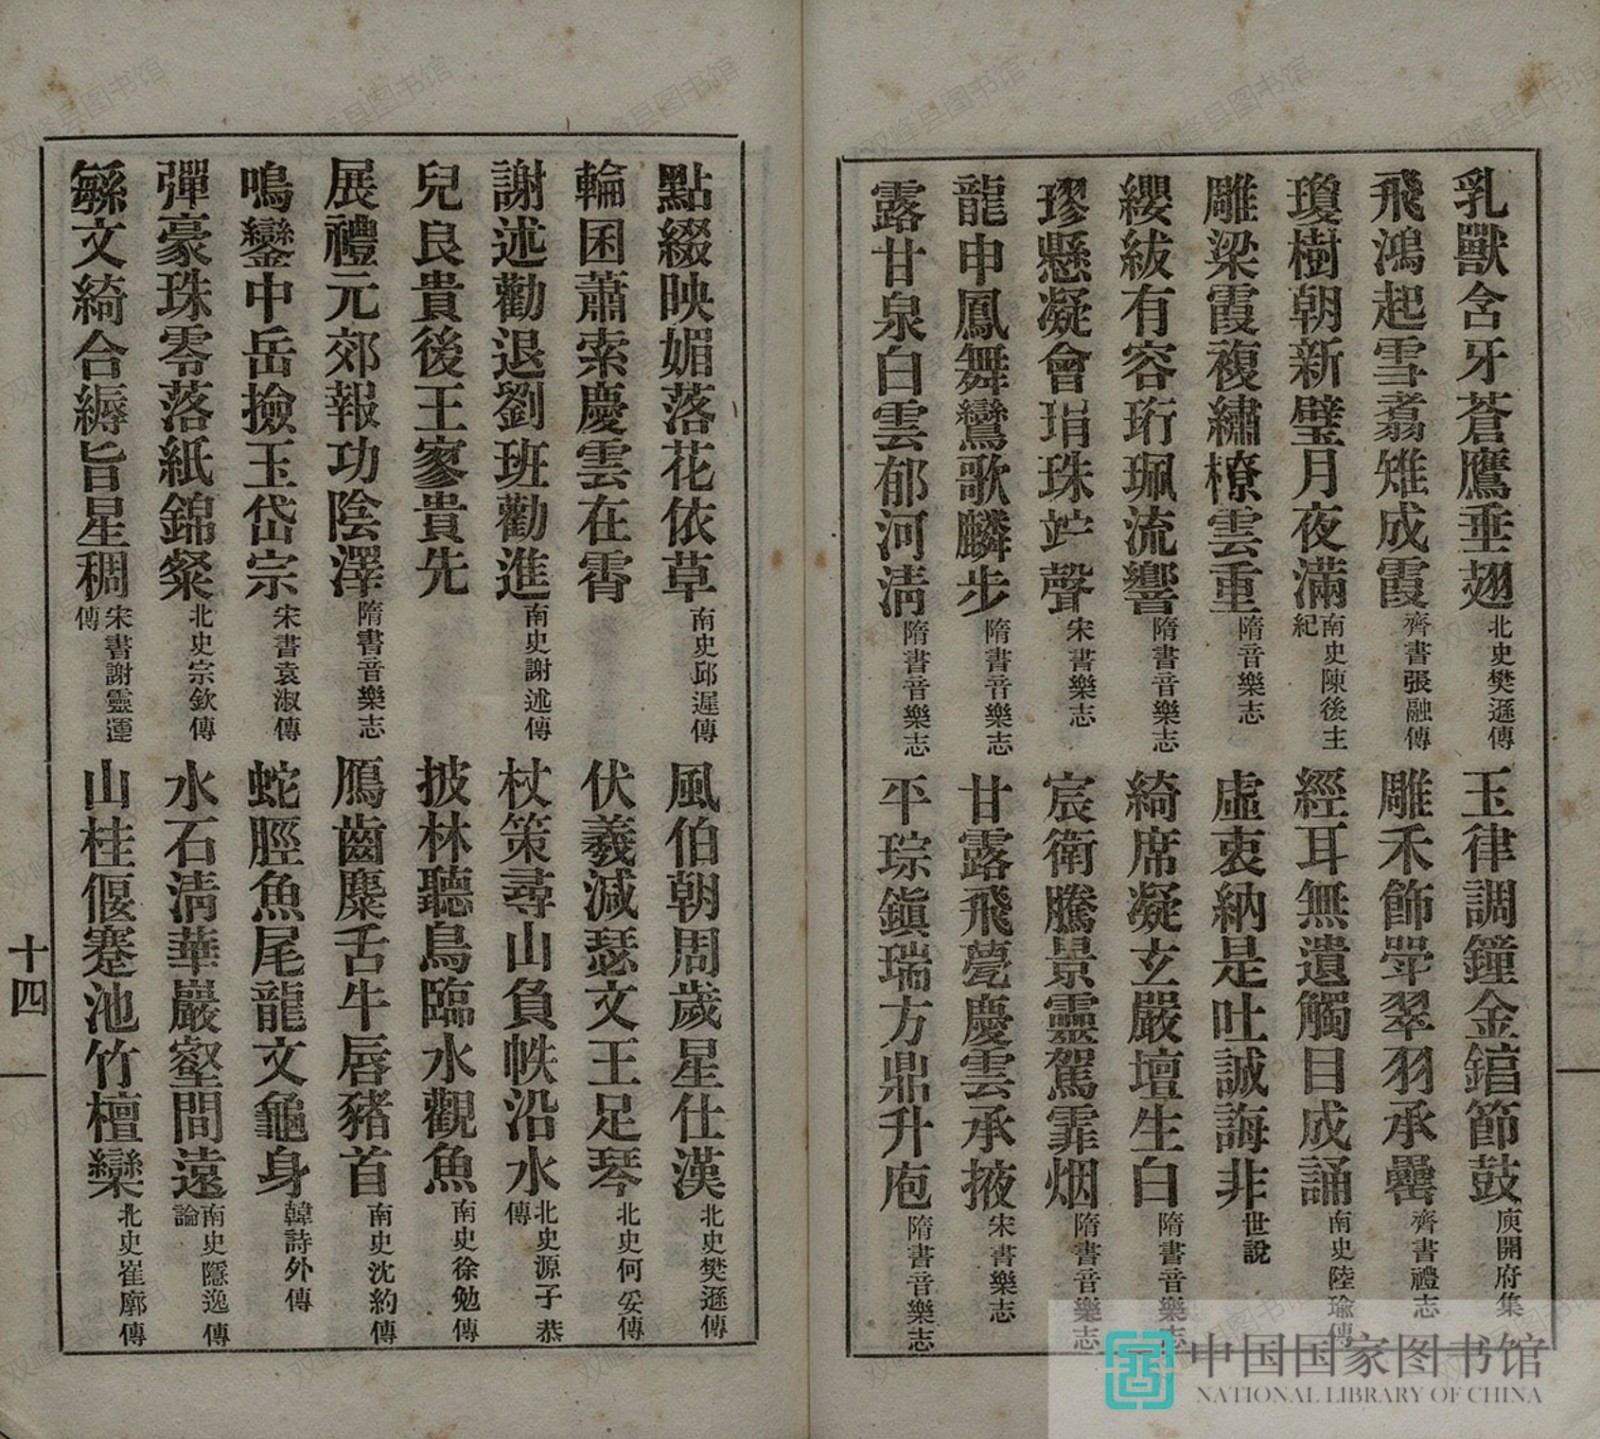 乳獸含牙蒼鷹垂翅 北史樊遜傳 玉律調鐘金錞節鼓 庾開府集
飛鴻起雪翥雉成霞 齊書張融傳 雕禾飾斝翠羽承罍 齊書禮志
瓊樹朝新璧月夜滿 南史陳後主紀 經耳無遺觸目成誦 南史陸瑜傳
雕梁霞複繡橑雲重 隋音樂志 虛衷納是吐誠誨非 世說
纓紱有容珩珮流響 隋書音樂志 綺席凝玄嚴壇生白 隋書音樂志
璆懸凝會琄珠竚聲 宋書樂志 宸衛騰景靈駕霏烟 隋書音樂志
龍申鳳舞鸞歌麟步 隋書音樂志 甘露飛甍慶雲承掖 宋書樂志
露甘泉白雲郁河淸 隋書音樂志 平琮鎭瑞方鼎升庖 隋書音樂志
點綴映媚落花依草 南史邱遲傳 風伯朝周歲星仕漢 北史樊遜傳
輪囷蕭索慶雲在霄 伏羲減瑟文王足琴 北史何妥傳
謝述勸退劉班勸進 南史謝述傳 杖策尋山負帙沿水 北史源子恭傳
兒良貴後王寥貴先 披林聽鳥臨水觀魚 南史徐勉傳
展禮元郊報功陰澤 隋書音樂志 鴈齒麋舌牛唇豬首 南史沈約傳
鳴鑾中岳撿玉岱宗 宋書袁淑傳 蛇脛魚尾龍文龜身 韓詩外傳
彈豪珠零落紙錦粲 北史宗欽傳 水石淸華巖壑間遠 南史隱逸傳論
繇文綺合縟旨星稠 宋書謝靈運傳 山桂偃蹇池竹檀欒 北史崔廓傳
十四
中国国家图书馆
NATIONAL LIBRARY OF CHINA
双峰县图书馆